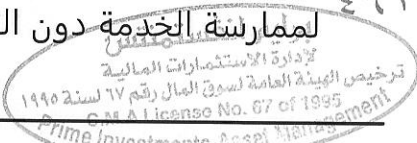 لممارسة الخدمة دون ال
لإدارة الاستثمارات المالية
ترخيص الهيئة العامة لسوق المال رقم ٦٧ لسنة ١٩٩٥
C.M.A License No. 67 of 1995
Prime Investments Asset Management